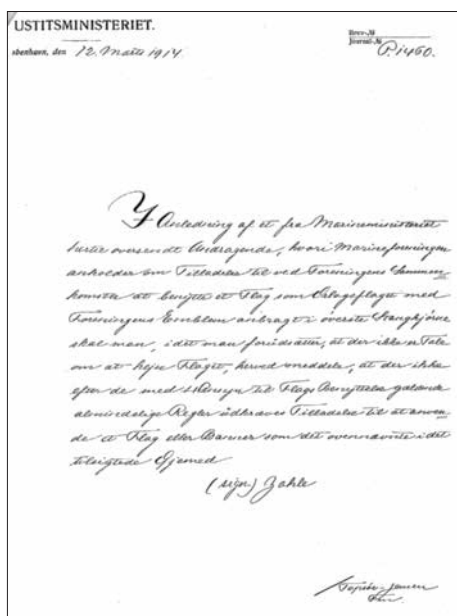 USTITSMINISTERIET.
øbenhavn, den 12. Marts 1914
Brev-No
Journal-No P. 1460.
I Anledning af et fra Marineministeriet
hertil oversendt Andragende, hvori Marineforeningen
anholder om Tilladelse til ved Foreningens Sammen-
komster at benytte et Flag som Orlogsflaget med
Foreningens Emblem anbragt i øverste Stanghjørne
skal man, idet man forudsætter, at der ikke er Tale
om at hejse Flaget, herved meddele, at der ikke
efter de med Hensyn til Flags Benyttelse gældende
almindelige Regler udkræves Tilladelse til at anven-
de et Flag eller Banner som det ovennævnte i det
tilsigtede Øjemed
(sign.) Zahle